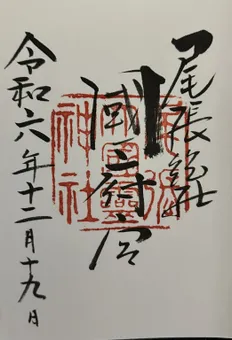 尾張總社
國府宮
令和六年十二月十九日
尾張
大國靈
神社